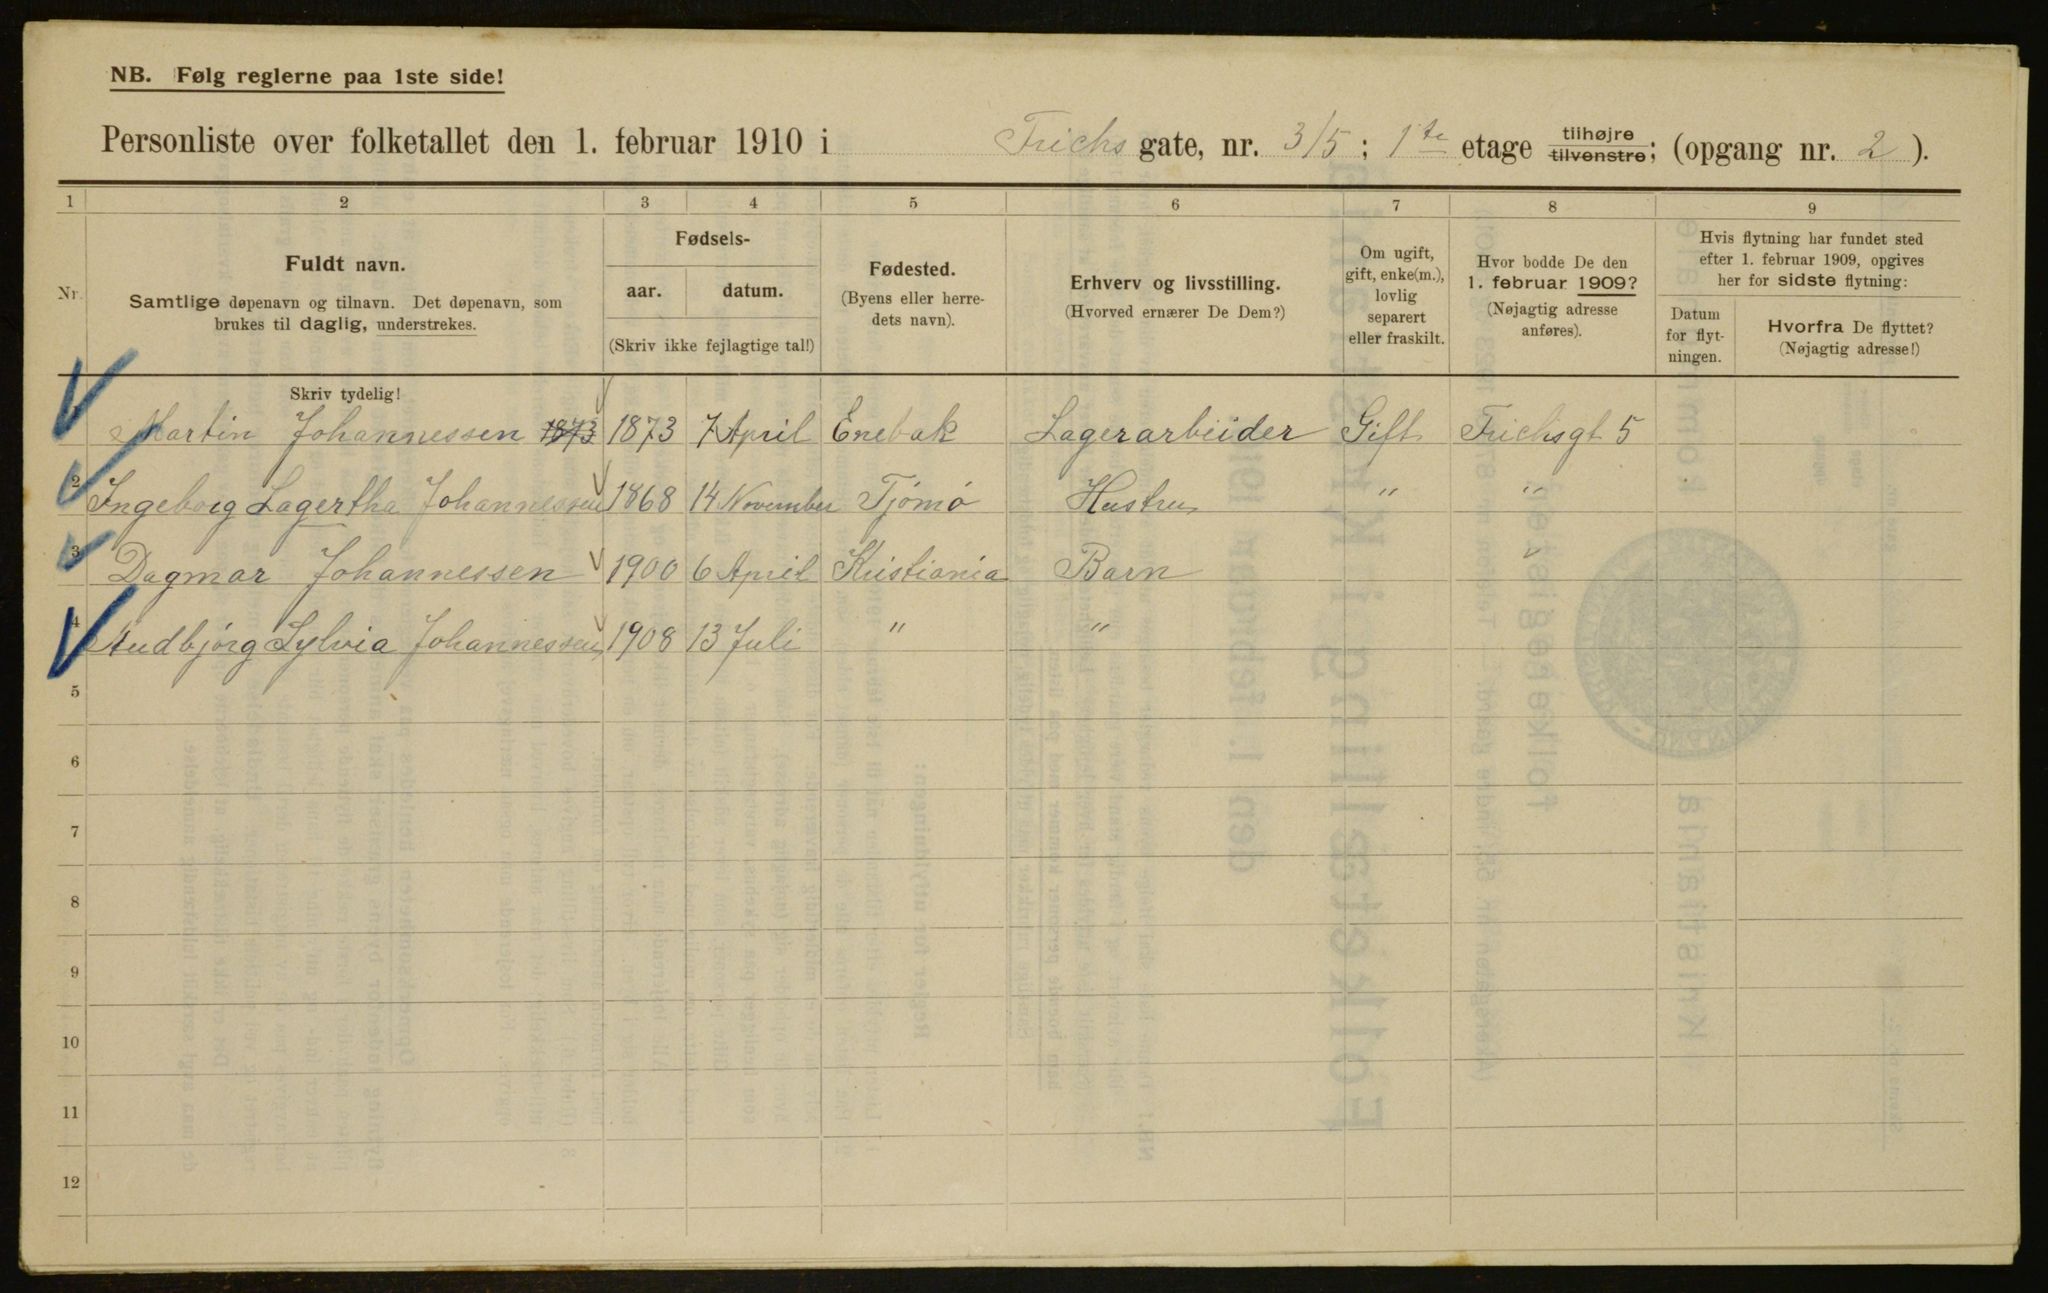 NB. Følg reglerne paa 1ste side!
Personliste over folketallet den 1. februar 1910 i Frichs gate, nr. 3/5 ; 1te etage tilhøjre tilvenstre; (opgang nr. 2 ).
1 2 3 4 5 6 7 8 9
Nr.
Fuldt navn.
Samtlige døpenavn og tilnavn. Det døpenavn, som
brukes til daglig, understrekes.
Skriv tydelig!
Fødsels-
aar. datum.
(Skriv ikke fejlagtige tal!)
Fødested.
(Byens eller herre-
dets navn).
Erhverv og livsstilling.
(Hvorved ernærer De Dem?)
Om ugift,
gift, enke(m.),
lovlig
separert
eller fraskilt.
Hvor bodde De den
1. februar 1909?
(Nøjagtig adresse
anføres).
Hvis flytning har fundet sted
efter 1. februar 1909, opgives
her for sidste flytning:
Datum
for flyt-
ningen.
Hvorfra De flyttet?
(Nøjagtig adresse!)
Martin Johannessen 1873 1873 7 April Enebak Lagerarbeider Gift Frichsgt 5
2 Ingeborg Lagertha Johannessen 1868 14 November Tjømø Hustru " "
3 Dagmar Johannessen 1900 6 April Kristiania Barn "
4 Audbjørg Sylvia Johannessen 1908 13 Juli " "
5
6
7
8
9
10
11
12